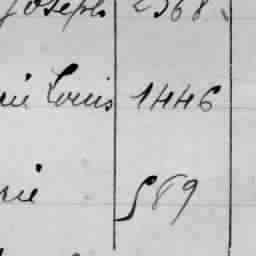 Joseph 2568
rie Louis 1446
rie 589